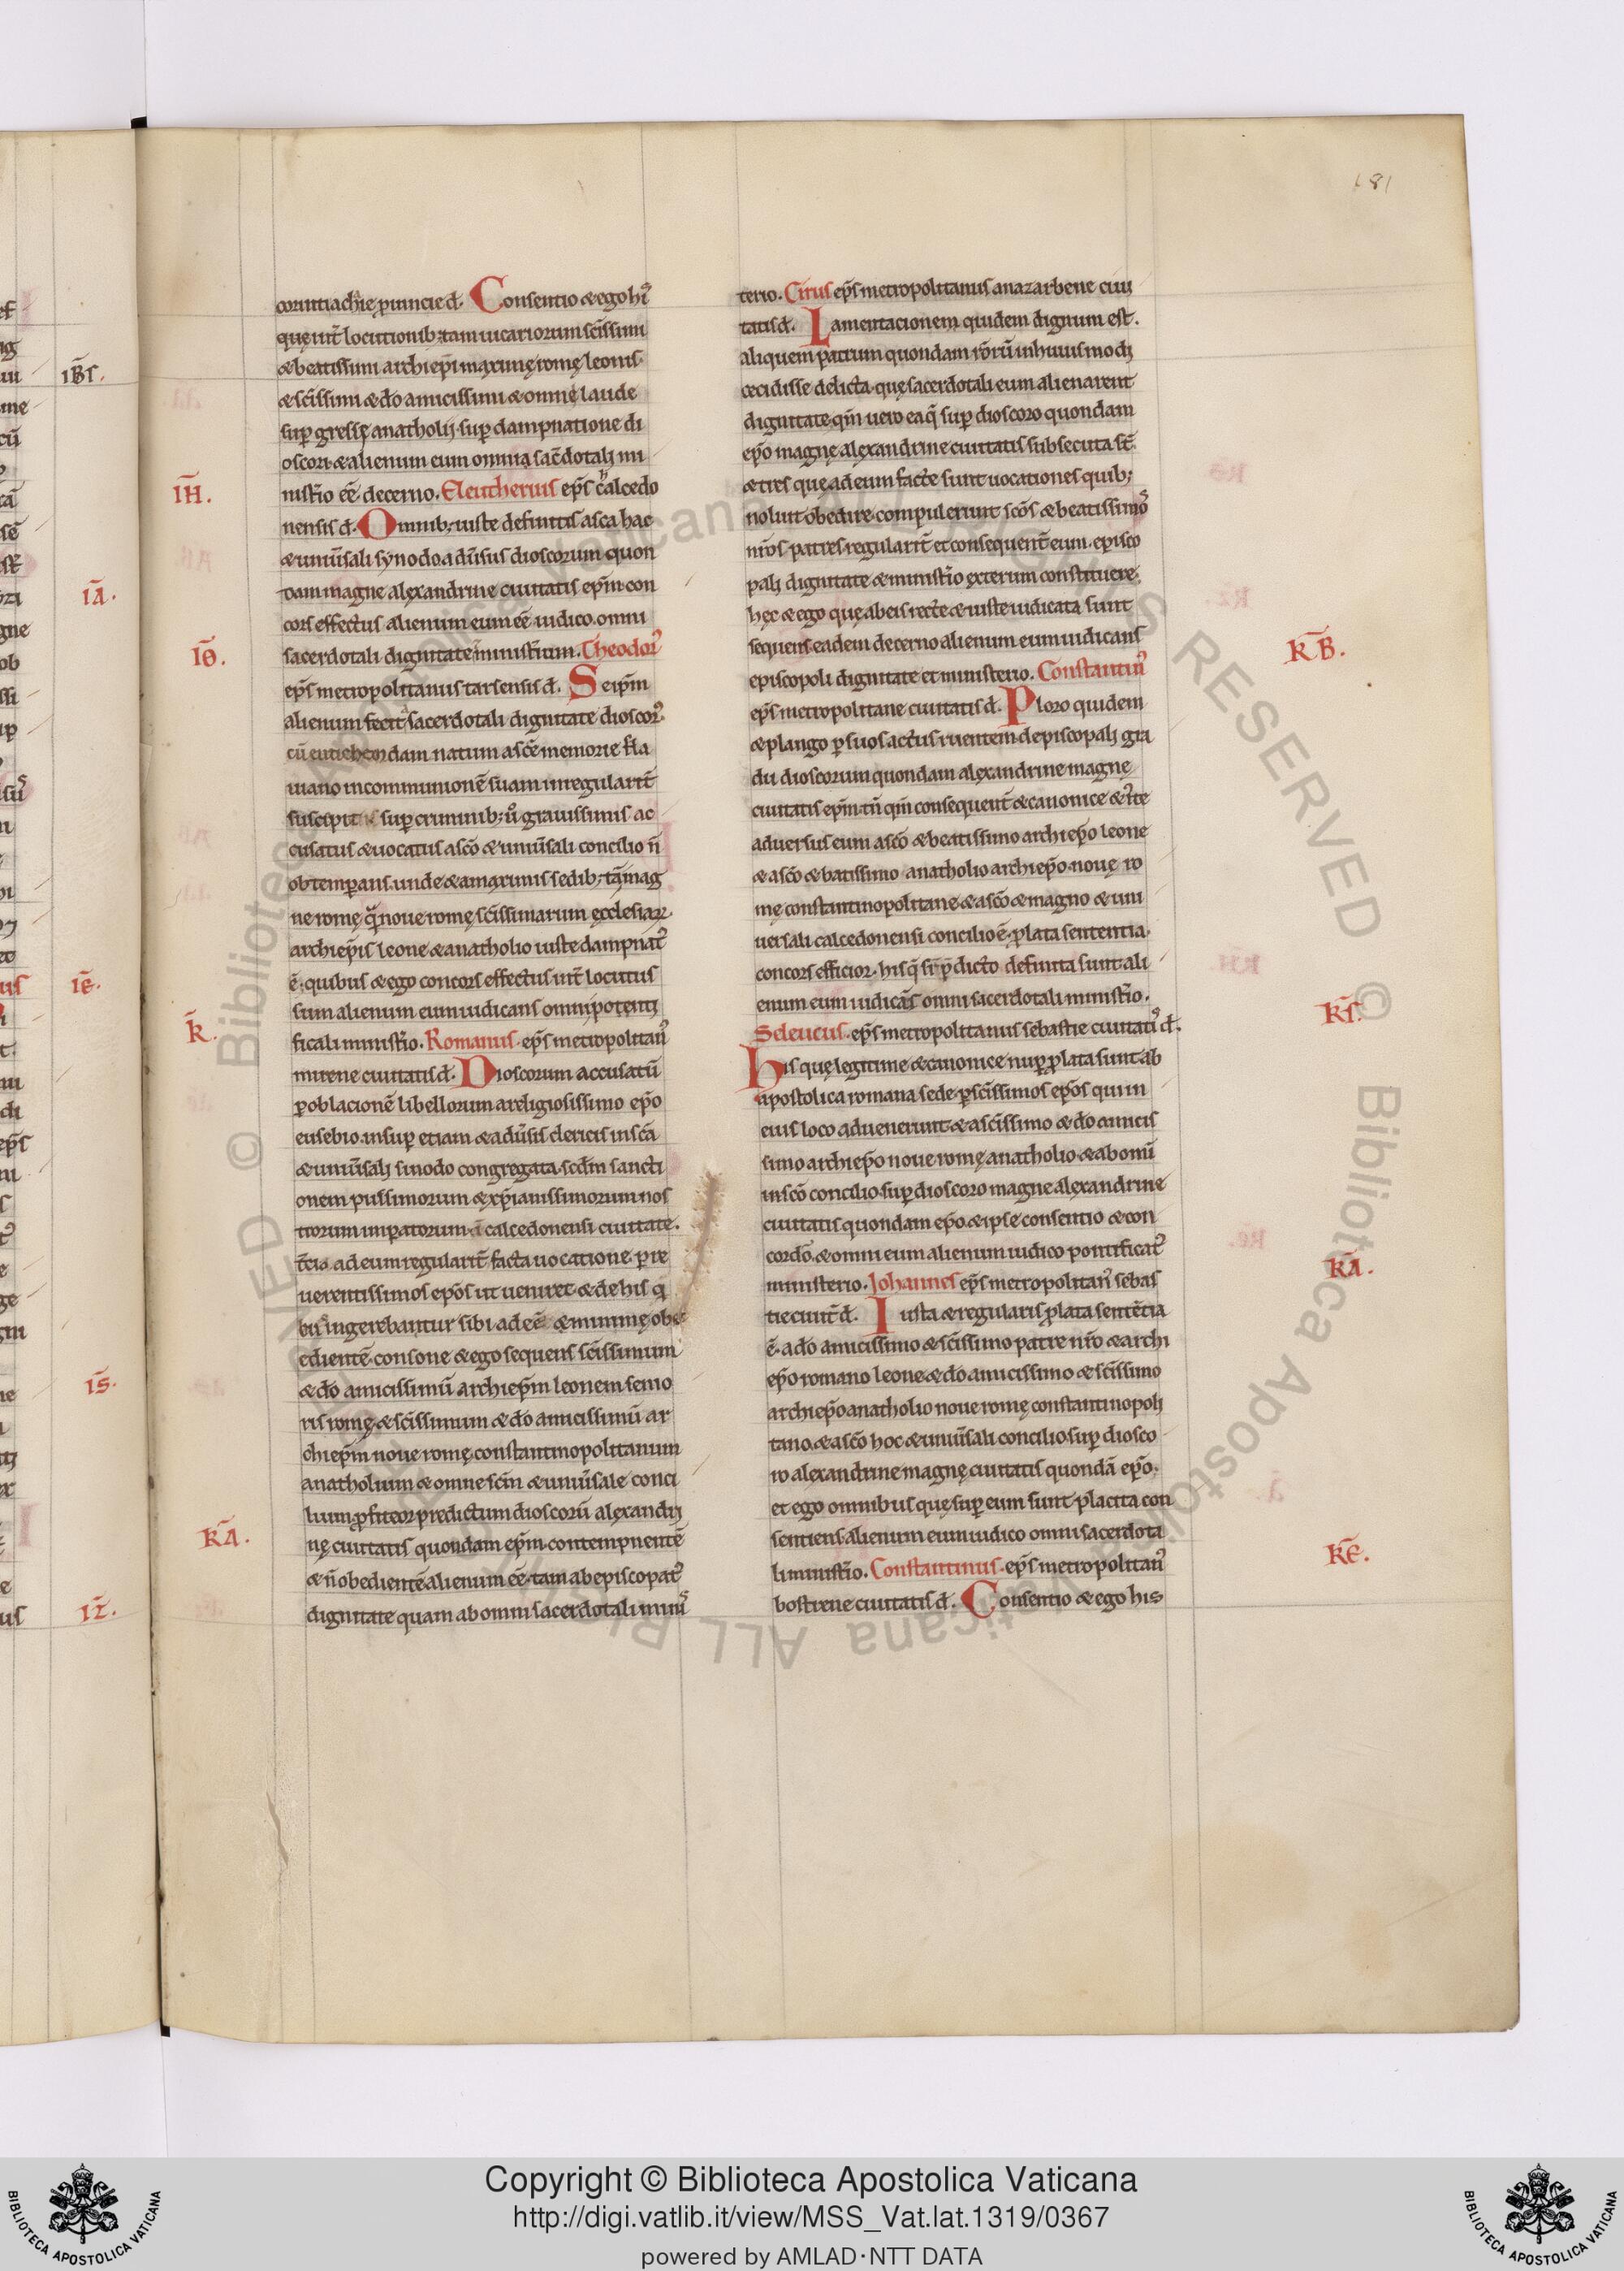 181
corintiachie ꝓuincie đ. Consentio & ego hiˀ
quę int̄ locutionib; tam uicariorum sc̄issimi
& beatissimi archiepi maximę romę leonis.
& sc̄issimi & d̄o amicissimi & omnię laude
suꝑ gressę anatholij suꝑ dampnatione di
oscori & alienum eum omnia sac̄dotali mi
nist̄io eē decerno. Eleutherius ep̄s calcedo
nensis đ. Omnib; iuste definitis a sca hac
& uniūsali synodo adūsus dioscorum quon
dam magne alęxandrine ciuitatis ep̄m con
cors effectus alienum eum eē iudico omni
sacerdotali dignitate ministrium. Theodorˀ
ep̄s metropolitanus tarsensis đ. Se ip̄m
alienum fecit sacerdotali dignitate dioscorˀ
cū eutichem dam natum a sc̄e memorie fla
uiano in communionē suam inregularit̄
suscipit suꝑ criminib; ũ grauissimis ac
cusatus & uocatus a sc̄o & uniūsali concilio n̄
obtemꝑans unde & a maximis sedib; tā mag
ne romę q̄ noue romę sc̄issimarum ęcclesiaꝝ
archiep̄is leone & anatholio iuste dampnatˀ
ē. quibus & ego concors effectus int̄ locutus
sum alienum eum iudicans omni potenti
ficali minist̄io. Romanus ep̄s metropolitanˀ
mirene ciuitatis đ. Dioscorum accusatū
ꝑ oblacionē libellorum a religiosissimo ep̄o
eusebio insuꝑ etiam & adūsis clericis in sc̄a
& uniūsali sinodo congregata scd̄m sancti
onem piissimorum & xp̄ianissimorum nos
trorum imꝑatorum calcedonensi ciuitate.
t̄cio ad eum regularit̄ facta uocatione ꝑ re
uerentissimos ep̄os ut ueniret & de his q
bu ingerebantur sibi ad eē & minimę obe
edientē. consone & ego sequens sc̄issimum
& d̄o amicissimū archiep̄m leonem senio
ris romę & sc̄issimum & d̄o amicissimū ar
chiep̄m noue romę constantinopolitanum
anatholium & omne sc̄m & uniūsale conci
lium ꝓfiteor predictum dioscorū alęxandri
nę ciuitatis quondam ep̄m contempnentē
& n̄ obedientē alienum eē tam ab episcopatˀ
dignitate quam ab omni sacerdotali minisˀ
terio. Cirus ep̄s metropolitanus anazarbene ciui
tatis đ. Lamentacionem quidem dignum est.
aliquem patrum quondam nr̄orū in huiusmodi
cecidisse delicta quę sacerdotali eum alienarent
dignitate qm̄ uero ea q̄ suꝑ dioscoro quondam
ep̄o magnę alęxandrine ciuitatis subsecuta st̄
& tres que ad eum facte sunt uocationes quib;
noluit obedire compulerunt sc̄os & beatissimoˢ
nr̄os patres regularit̄ et consequent̄ eum episco
pali dignitate & minist̄io exterum constituere.
hęc & ego quę ab eis recte & iuste iudicata sunt
sequens eadem decerno alienum eum iudicans
episcopoli dignitate et ministerio. Constantinˀ
ep̄s metropolitane ciuitatis đ. Ploro quidem
& plango ꝑ suos actus ruentem de piscopali gra
du dioscorum quondam alęxandrine magnę
ciuitatis ep̄m. tn̄ qm̄ consequent̄ & canonice & r̄te
aduersus eum a sc̄o & beatissimo archiep̄o leone
& a sc̄o & batissimo anatholio archiep̄o nouę ro
mę constantinopolitanę & a sc̄o & magno & uni
uersali calcedonensi concilio ē. ꝓlata sententia.
concors efficior. his q̄ sr̄ p̄dicto definita sunt ali
enum eum iudicās omni sacerdotali minist̄io.
Seleucus ep̄s metropolitanus sebastie ciuitatiˢ đ.
His quę legitime & canonice nuꝑ ꝓlata sunt ab
apostolica romana sede ꝑ sc̄issimos ep̄os qui in
eius loco aduenerunt & a sc̄issimo & d̄o amicis
simo archiep̄o noue romę anatholio & ab omī
in sc̄o concilio suꝑ dioscoro magne alęxandrine
ciuitatis quondam ep̄o. & ipse consentio & con
cordo. & omni eum alienum iudico pontificatˀ
ministerio. Johannes ep̄s metropolitanˀ sebas
tie ciuit̄ đ. Iusta & regularis ꝓlata sentētia
ē. a d̄o amicissimo & sc̄issimo patre nr̄o & archi
ep̄o romano leone & d̄o amicissimo & sc̄issimo
archiep̄o anatholio noue romę constantinopoli
tano. & a sc̄o hoc & uniūsali concilio suꝑ diosco
ro alexandrine magnę ciuitatis quondā ep̄o.
et ego omnibus quę suꝑ eum sunt placita con
sentiens alienum eum iudico omni sacerdota
li minist̄io. Constantinus ep̄s metropolitanˀ
bostrene ciuitatis đ. Consentio & ego his
IBS.
IA.
IE.
IS.
IZ.
IH.
IΘ.
K.
KA.
KB.
KS.
KA.
KE.
© Biblioteca Apostolica Vaticana ALL RIGHTS RESERVED
Copyright © Biblioteca Apostolica Vaticana
http://digi.vatlib.it/view/MSS_Vat.lat.1319/0367
powered by AMLAD·NTT DATA
BIBLIOTECA APOSTOLICA VATICANA
BIBLIOTECA APOSTOLICA VATICANA